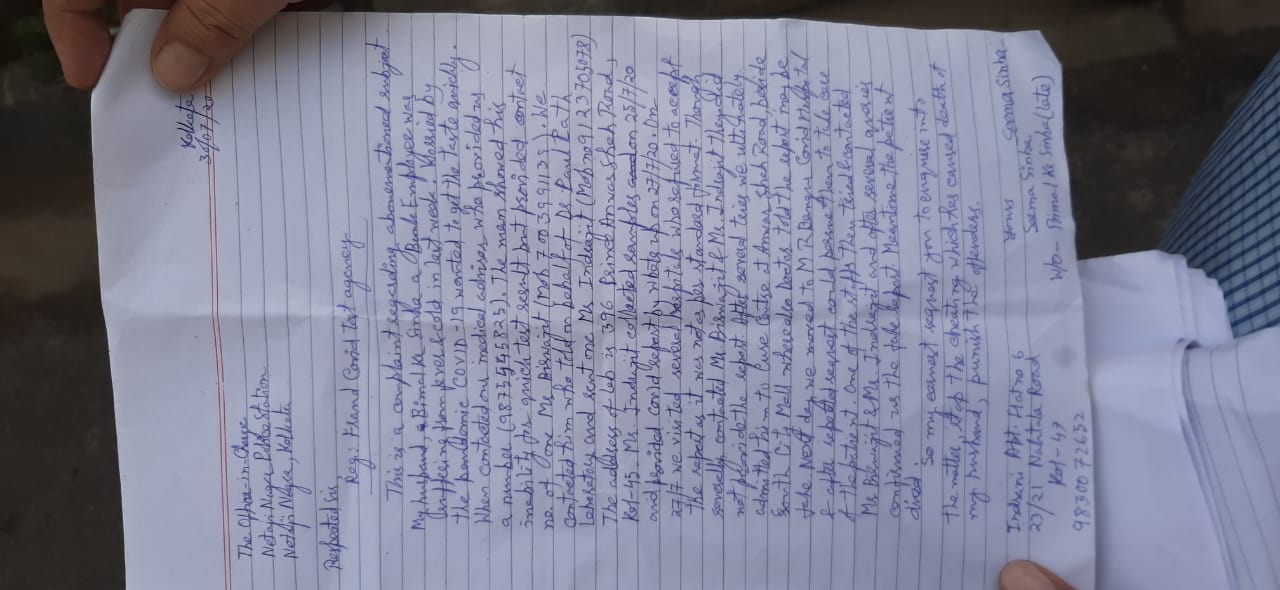 Kolkata
30/07/20
The Officer-in-Charge
Netaji Nagar Police Station
Netaji Nagar, Kolkata
Respected Sir
Reg: Fraud Covid test agency
This is a complaint regarding abovementioned subject.
My husband, Bimal Ke Sinha a Bank Employee was
suffering from fever & cold in last week. Passed by
the pandemic COVID-19 wanted to get the taste quickly.
When contacted our medical adviser, who provided us
a number (9873545823). The man showed his
inability for quick test result but provided contact
no of one Mr Biswajit (Mob 7003991131). We
contacted him who told on behalf of Dr Paul Path
Laboratory and sent one Mr Indrajit (Mob no 9123705078)
The address of Lab is 396 Prince Anwar Shah Road,
Kol-45. Mr. Indrajit collected samples on 25/7/20
and provided covid report by whats up on 27/7/20. On
27/7 we visited several hospitals who refused to accept
the report as it was not as per standeed format. Though
severely contacted Mr Biswajit & Mr Indrajit they did
not provide the report. After several tries we ultimately
admitted him to Cure Centre at Anwar Shah Road beside
South City Mall where also Doctor told the report may be
fake. Next day we moved to M R Bangur Covid Hospital
& after repeated request could persue them to take care
of the patient. One of the staffs then tried & contacted
Mr Biswajit & Mr Indrajit and after several queries
confirmed us the fake report. Meantime the patient
died.
So my earnest request you to enquire into
the matter, stop the cheating which has caused death of
my husband, punish the offenders.
Yours
Indrani Apt. Flat no 6
Seema Sinha
23/21 Naktala Road
Seema Sinha
Kol-47
W/o- Bimal Ke Sinha (Late)
9830072652